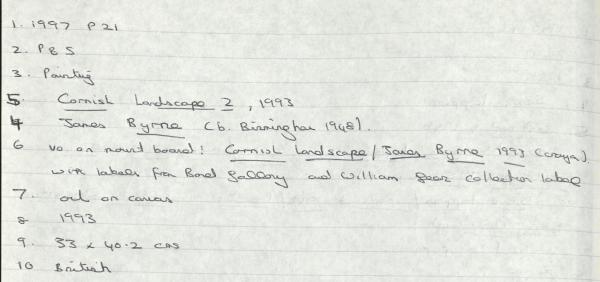 1. 1997 P 21
2. PBS
3. Painting
5 Cornish Landscape 2, 1993
4 James Byrne (b. Birmingham 1948).
6 vo. on mount board: Cornish Landscape / James Byrne 1993 (crayon).
with labels from Bond Gallery and William Gear collection label
7. oil on canvas
8 1993
9. 33 x 40.2 cms
10 British